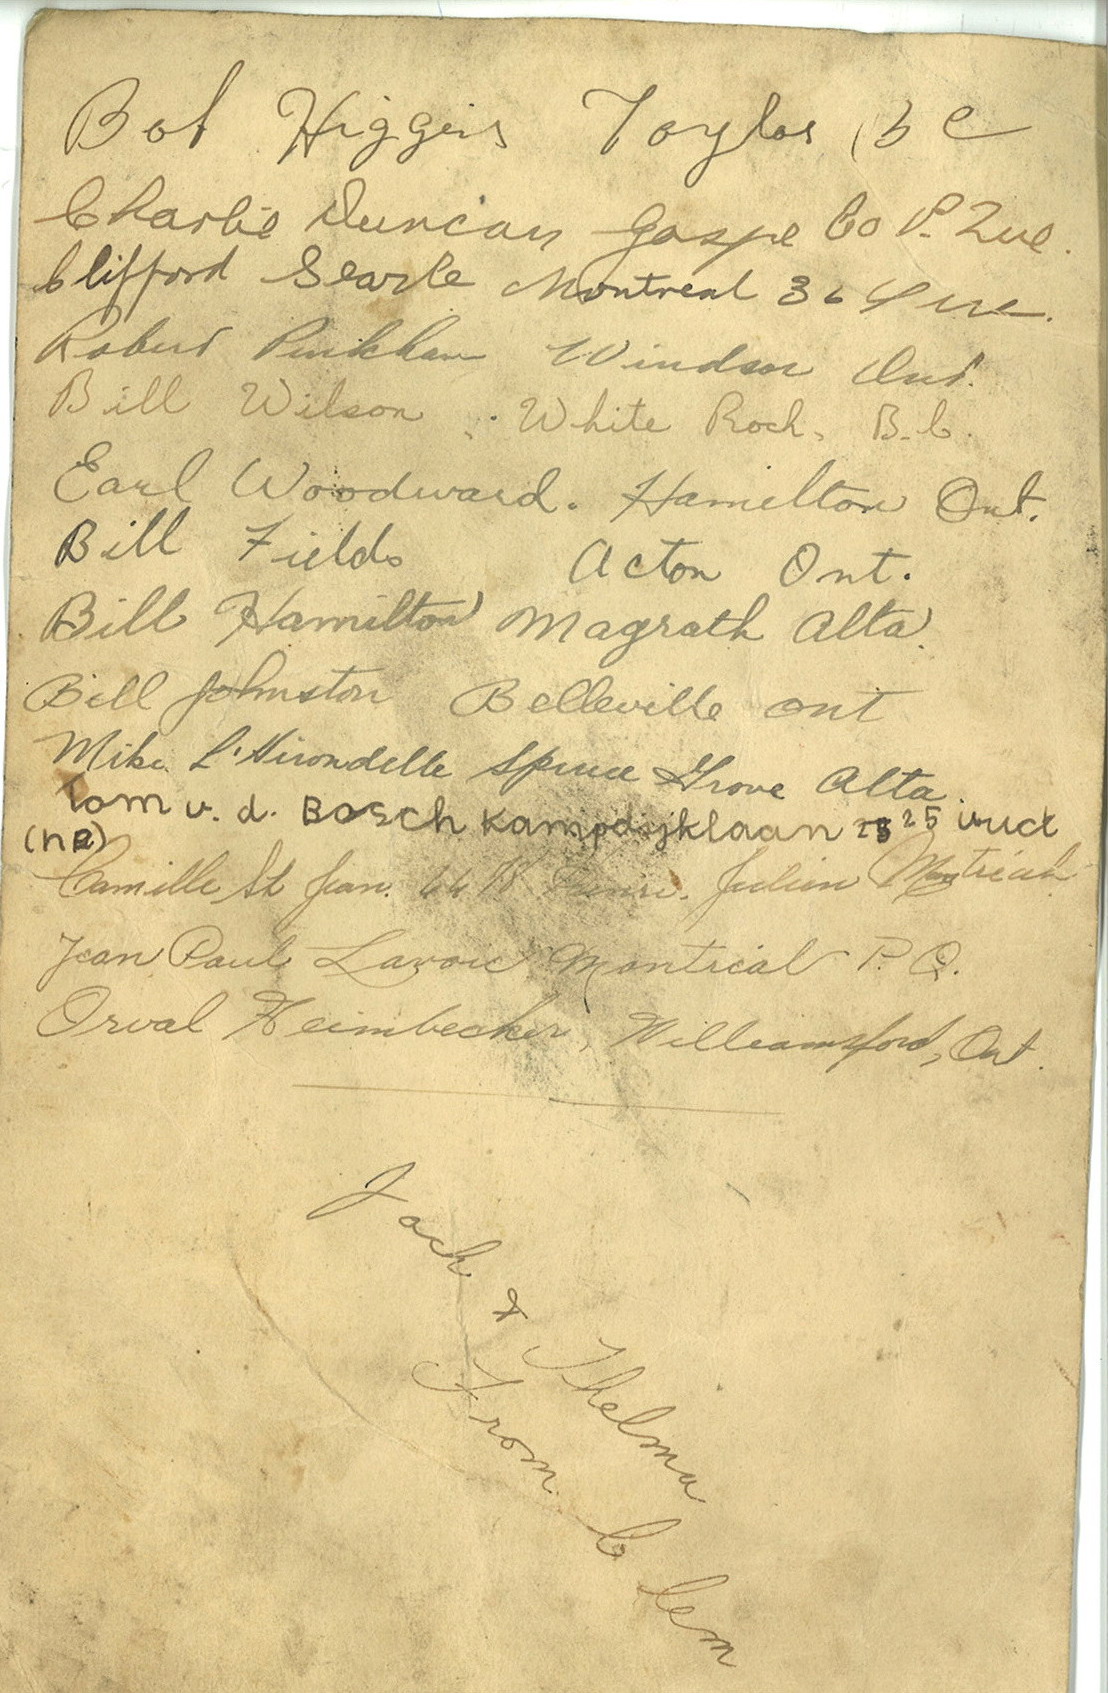 Bob Higgins Taylor B C
Charlie Duncan Gaspe Co P. Que.
Clifford Searle Montreal 36 Que.
Robert Pinkham Windsor Ont.
Bill Wilson White Rock, B.C.
Earl Woodward. Hamilton Ont.
Bill Fields Acton Ont.
Bill Hamilton Magrath Alta.
Bill Johnston Belleville ont
Mike L'Hirondelle Spruce Grove Alta.
Tom v. d. Bosch Kampdijklaan 25 vuct
(NB)
Camille St Jean. Julien Montreal
Jean Paul Lavoie Montreal P. Q.
Orval Heimbecker, Williamsford, Ont.
Jack & Thelma
From Clem